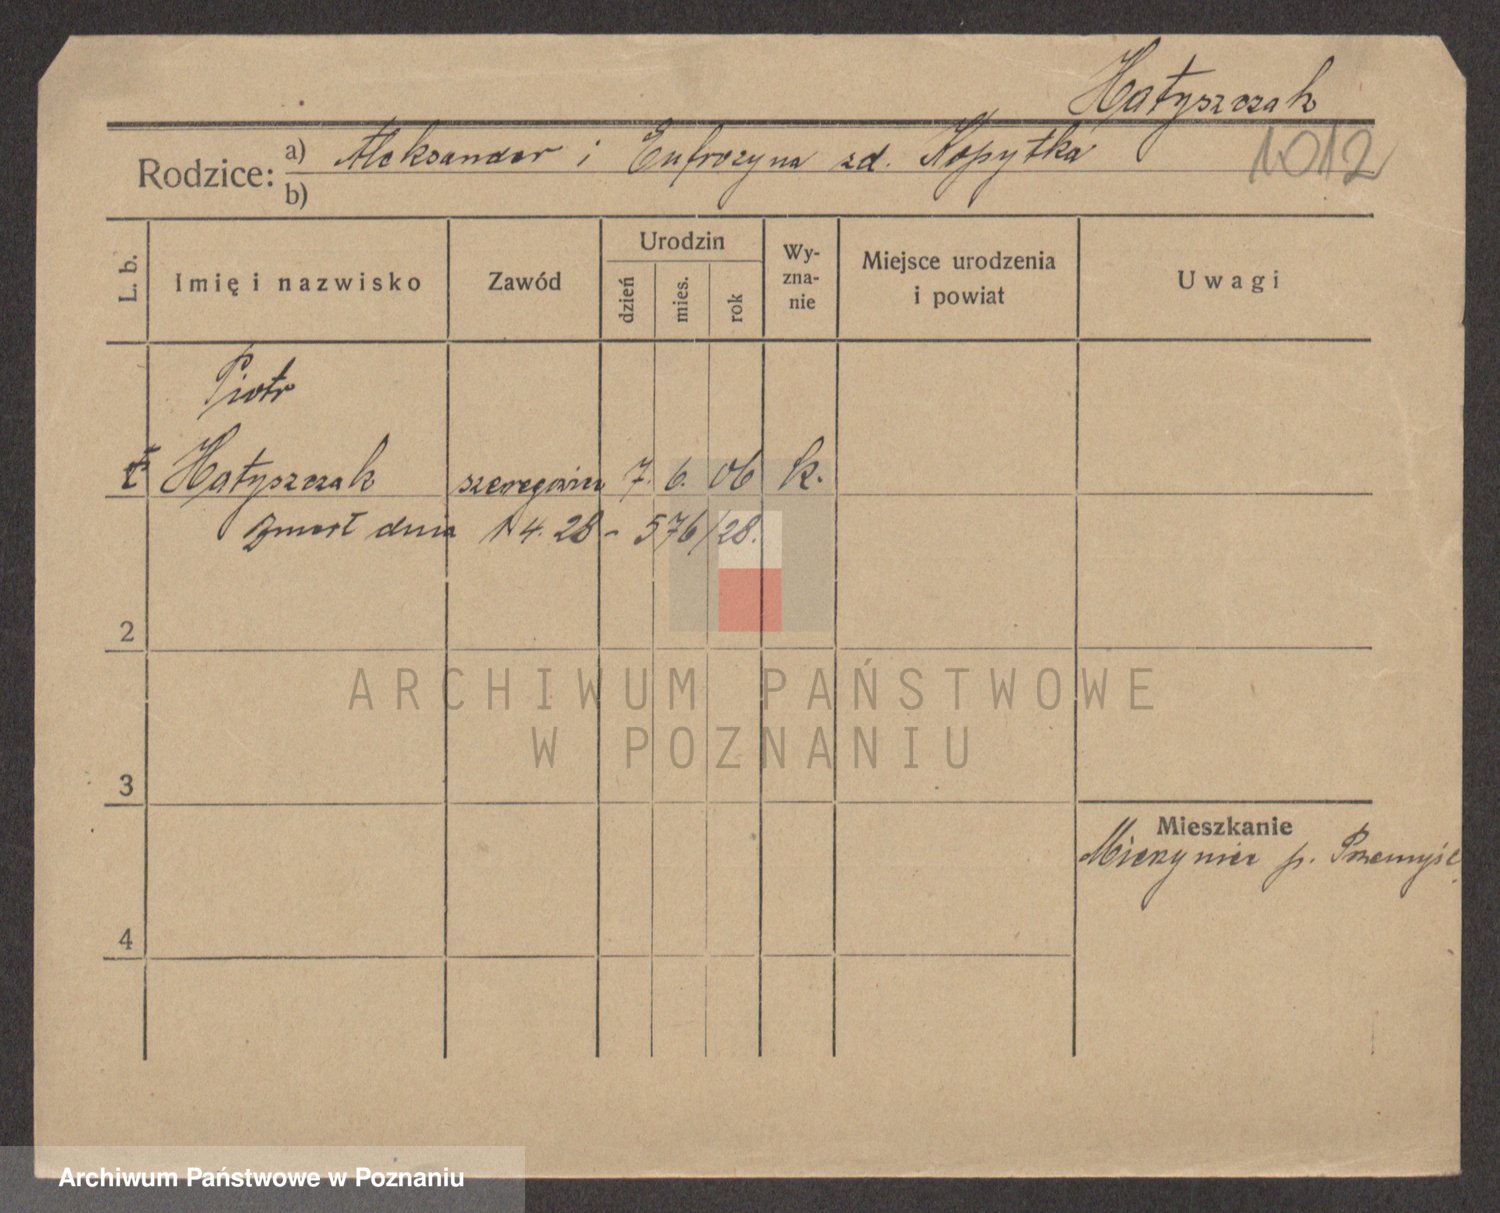 Hałyszczak
1012
Rodzice: a) Aleksander i Eufrozyna zd. Kopytka
b)
L. b. Imię i nazwisko Zawód Urodzin dzień mies. rok Wy-zna-nie Miejsce urodzenia i powiat Uwagi
Piotr
Hałyszczak szeregowiec 7. 6. 06 k.
Zmarł dnia 4. 28 - 576/28.
2
3
4
Mieszkanie
p. Przemyśl
ARCHIWUM PAŃSTWOWE
W POZNANIU
Archiwum Państwowe w Poznaniu